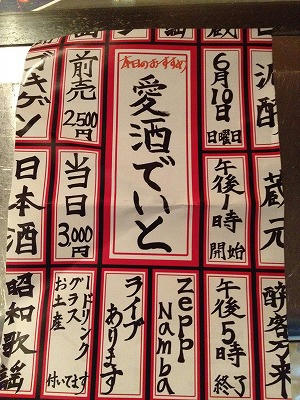 本日のおすすめ
愛酒でぃと
6月10日
日曜日
午後1時
開始
午後5時
終了
Zepp
Namba
ライブ
あります
前売
2,500円
当日
3,000円
1ドリンク
グラス
お土産
付いてます
蔵元
ゴキゲン
日本酒
昭和歌謡